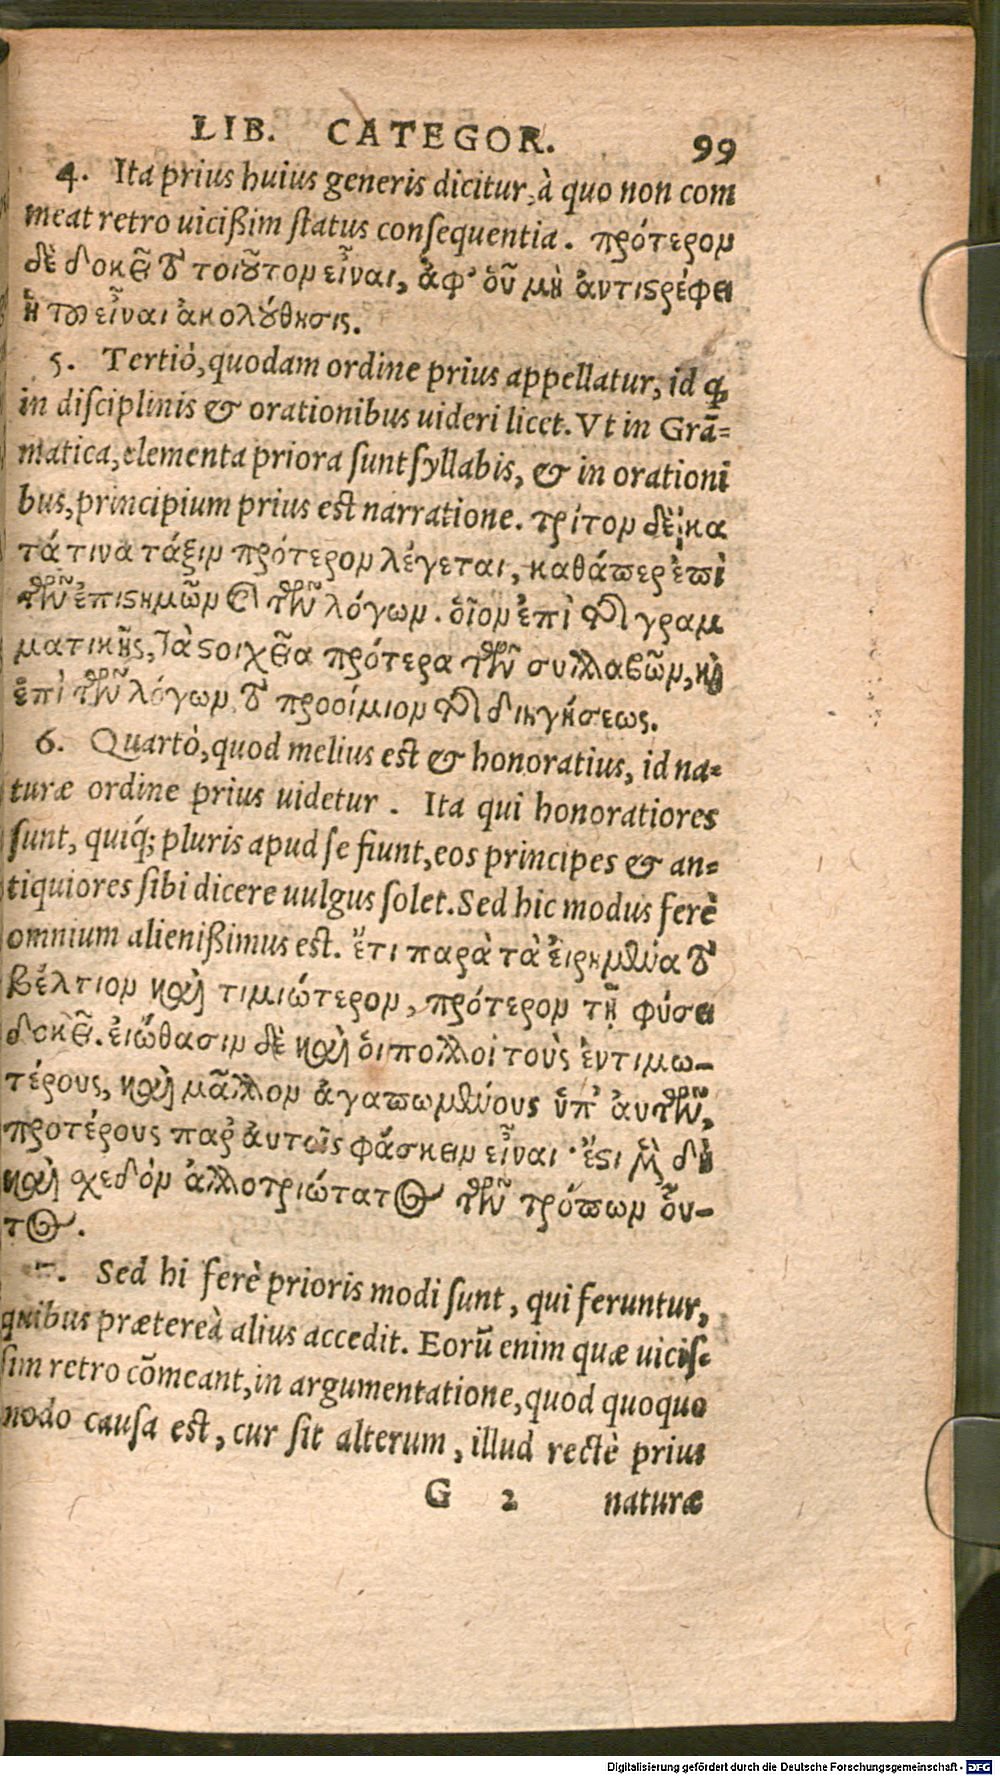 LIB. CATEGOR. 99
4. Ita prius huius generis dicitur, à quo non com
meat retro uicißim ſtatus conſequentia. πρότερον
δὲ δοκεῖ τὸ τοιοῦτον εἶναι, ἀφ' οὗ μὴ ἀντιστρέφει
ἡ τοῦ εἶναι ἀκολούθησις.
5. Tertiò, quodam ordine prius appellatur, id ꝙ
in diſciplinis & orationibus uideri licet. Vt in Grã-
matica, elementa priora ſunt ſyllabis, & in orationi
bus, principium prius eſt narratione. τρίτον δὲ κα
τά τινα τάξιν πρότερον λέγεται, καθάπερ ἐπὶ
τῶν ἐπιστημῶν καὶ τῶν λόγων. οἷον ἐπὶ τῆς γραμ
ματικῆς, τὰ στοιχεῖα πρότερα τῶν συλλαβῶν, καὶ
ἐπὶ τῶν λόγων τὸ προοίμιον τῆς διηγήσεως.
6. Quartò, quod melius eſt & honoratius, id na-
turæ ordine prius uidetur. Ita qui honoratiores
ſunt, quiq́; pluris apud ſe fiunt, eos principes & an-
tiquiores ſibi dicere uulgus ſolet. Sed hic modus ferè
omnium alienißimus eſt. ἔτι παρὰ τὰ εἰρημένα τὸ
βέλτιον καὶ τιμιώτερον, πρότερον τῇ φύσει
δοκεῖ. εἰώθασιν δὲ καὶ οἱ πολλοὶ τοὺς ἐντιμω-
τέρους, καὶ μᾶλλον ἀγαπωμένους ὑπ' αὐτῶν,
προτέρους παρ' αὐτοῖς φάσκειν εἶναι. ἔστι μὲν δὴ
καὶ σχεδὸν ἀλλοτριώτατος τῶν τρόπων οὗ-
τος.
7. Sed hi ferè prioris modi ſunt, qui feruntur,
quibus prætereà alius accedit. Eorũ enim quæ uiciſ-
ſim retro cõmeant, in argumentatione, quod quoquo
modo cauſa eſt, cur ſit alterum, illud rectè prius
G 2 naturæ
Digitalisierung gefördert durch die Deutsche Forschungsgemeinschaft - DFG